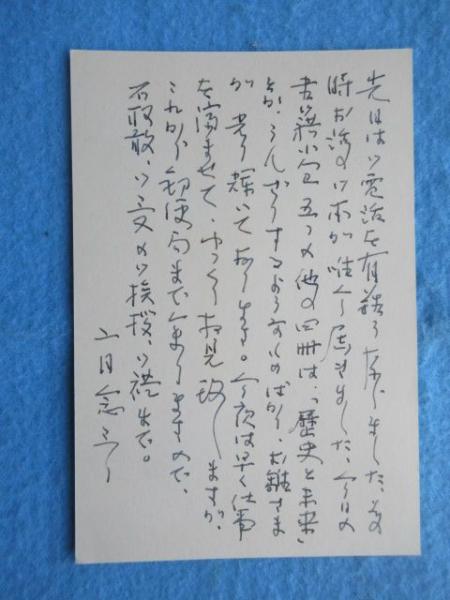 先日はお電話を有難う存じました。その
時お話の御本が唯今届きました。今日の
書籍小包五つの他の四冊は、「歴史と未来」
とか、うんざりするようなものばかり、お雛さま
が光り輝いて おります。今夜は早く仕事
を済ませて、ゆっくり拝見致しますが、
これから郵便局まで参りますので、
不取敢、御受の御挨拶、御礼まで。